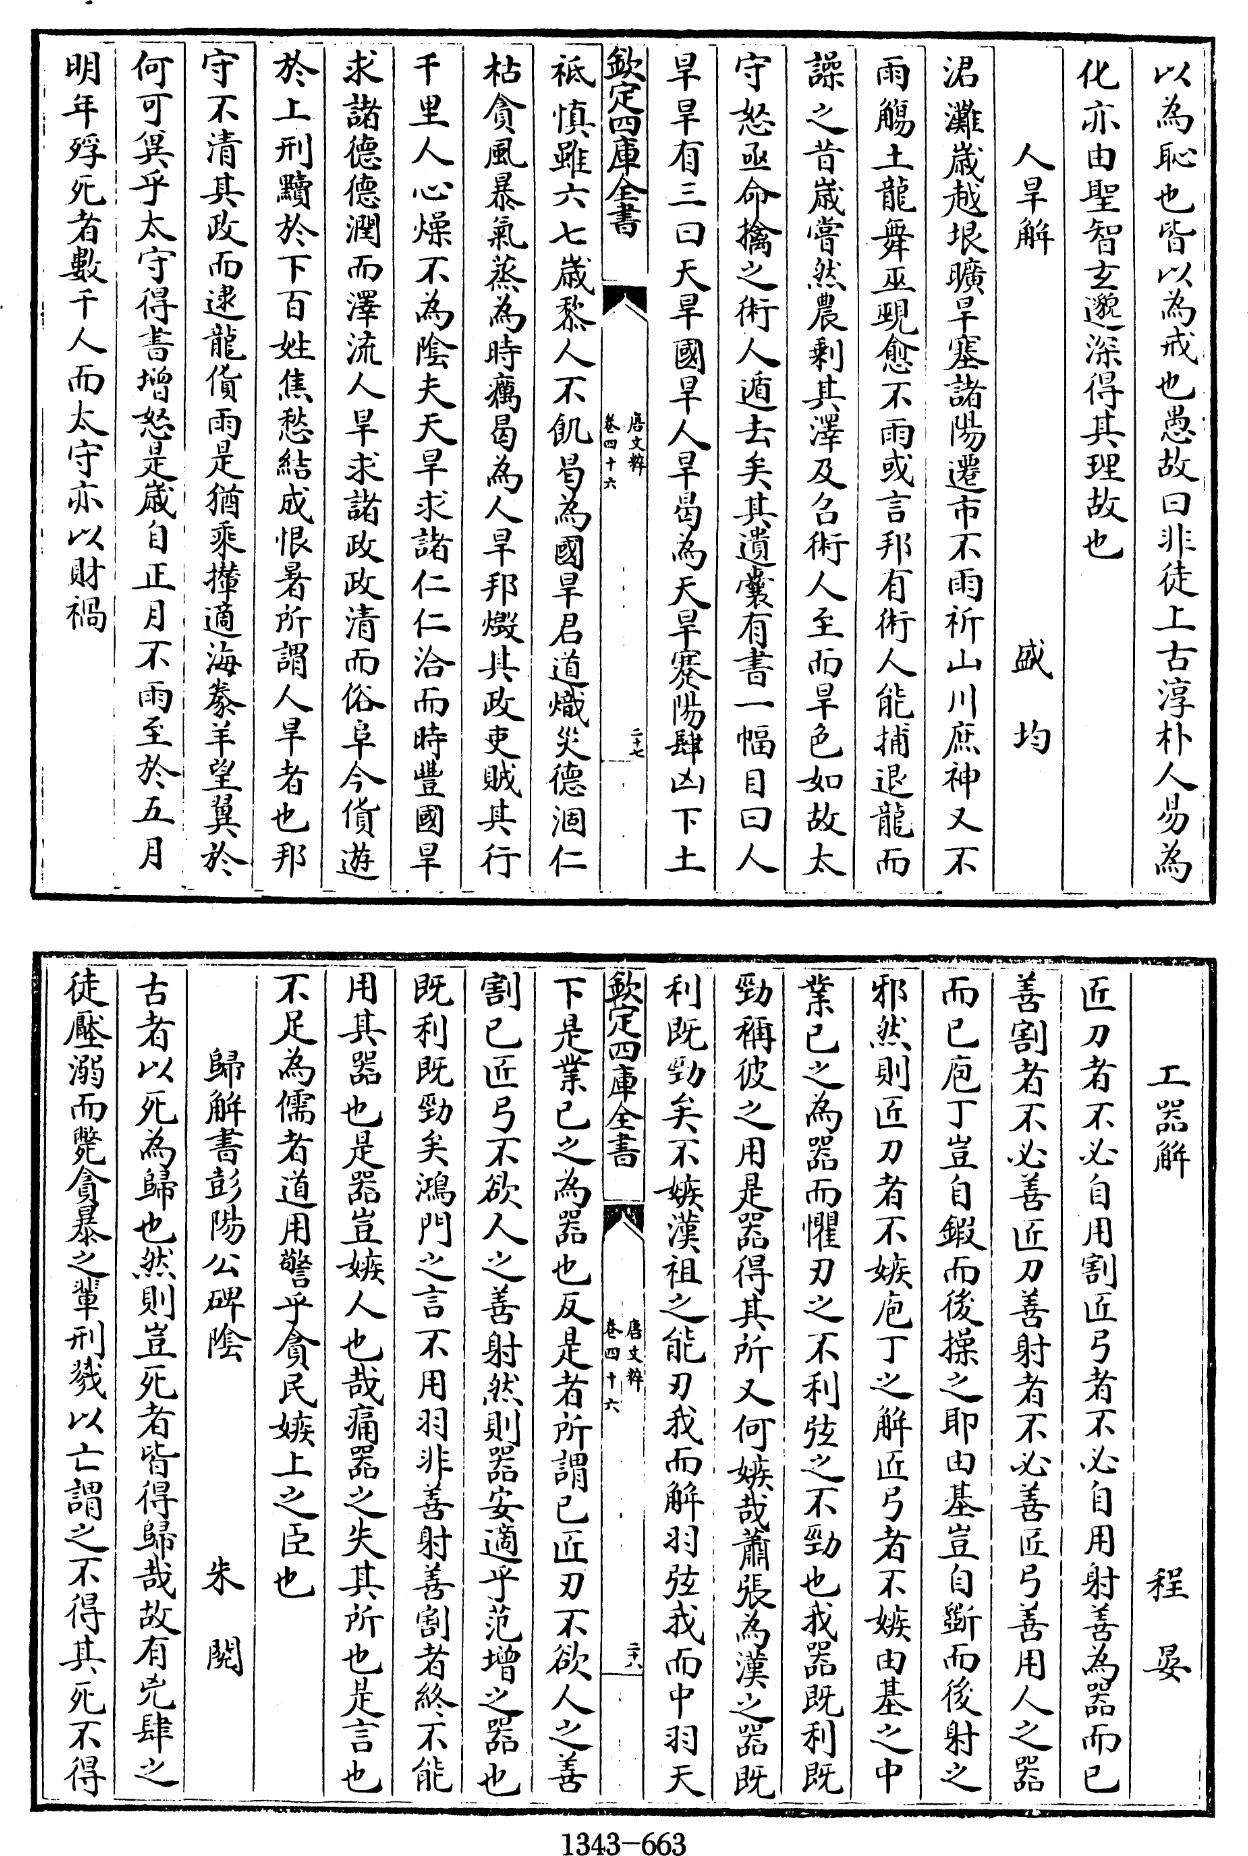 以為恥也皆以為戒也愚故曰非徒上古淳朴人易為
化亦由聖智玄邈深得其理故也
人旱解 盛均
涒灘歳越垠曠旱塞諸陽遷市不雨祈山川庶神又不
雨觴土龍舞巫覡愈不雨或言邦有術人能捕退龍而
譟之昔歳嘗然農剩其澤及召術人至而旱色如故太
守怒亟命擒之術人遁去矣其遺囊有書一幅目曰人
旱旱有三曰天旱國旱人旱曷為天旱蹇陽肆凶下土
欽定四庫全書
唐文粹
卷四十六
二十七
祗慎雖六七歳黎人不飢曷為國旱君道熾災德涸仁
枯貪風暴氣蒸為時癘曷為人旱邦燬其政吏賊其行
千里人心燥不為陰夫天旱求諸仁仁洽而時豐國旱
求諸德德潤而澤流人旱求諸政政清而俗阜今貨遊
於上刑黷於下百姓焦愁結成恨暑所謂人旱者也邦
守不清其政而逮龍貨雨是猶乘攆適海豢羊望翼於
何可兾乎太守得書增怒是歳自正月不雨至於五月
明年殍死者數千人而太守亦以財禍
工器解 程晏
匠刀者不必自用割匠弓者不必自用射善為器而已
善割者不必善匠刀善射者不必善匠弓善用人之器
而已庖丁豈自鍜而後操之耶由基豈自斵而後射之
邪然則匠刀者不嫉庖丁之解匠弓者不嫉由基之中
業已之為器而懼刃之不利弦之不勁也我器既利既
勁稱彼之用是器得其所又何嫉哉蕭張為漢之器既
利既勁矣不嫉漢祖之能刃我而解羽弦我而中羽天
欽定四庫全書
唐文粹
卷四十六
二十八
下是業已之為器也反是者所謂已匠刃不欲人之善
割已匠弓不欲人之善射然則器安適乎范增之器也
既利既勁矣鴻門之言不用羽非善射善割者終不能
用其器也是器豈嫉人也哉痛器之失其所也是言也
不足為儒者道用警乎貪民嫉上之臣也
歸解書彭陽公碑陰 朱閱
古者以死為歸也然則豈死者皆得歸哉故有兇肆之
徒壓溺而斃貪暴之輩刑戮以亡謂之不得其死不得
1343-663